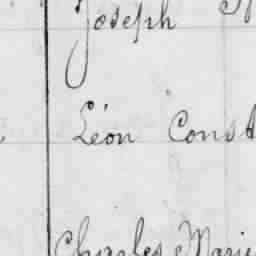 Joseph
Léon Const
Charles Marie